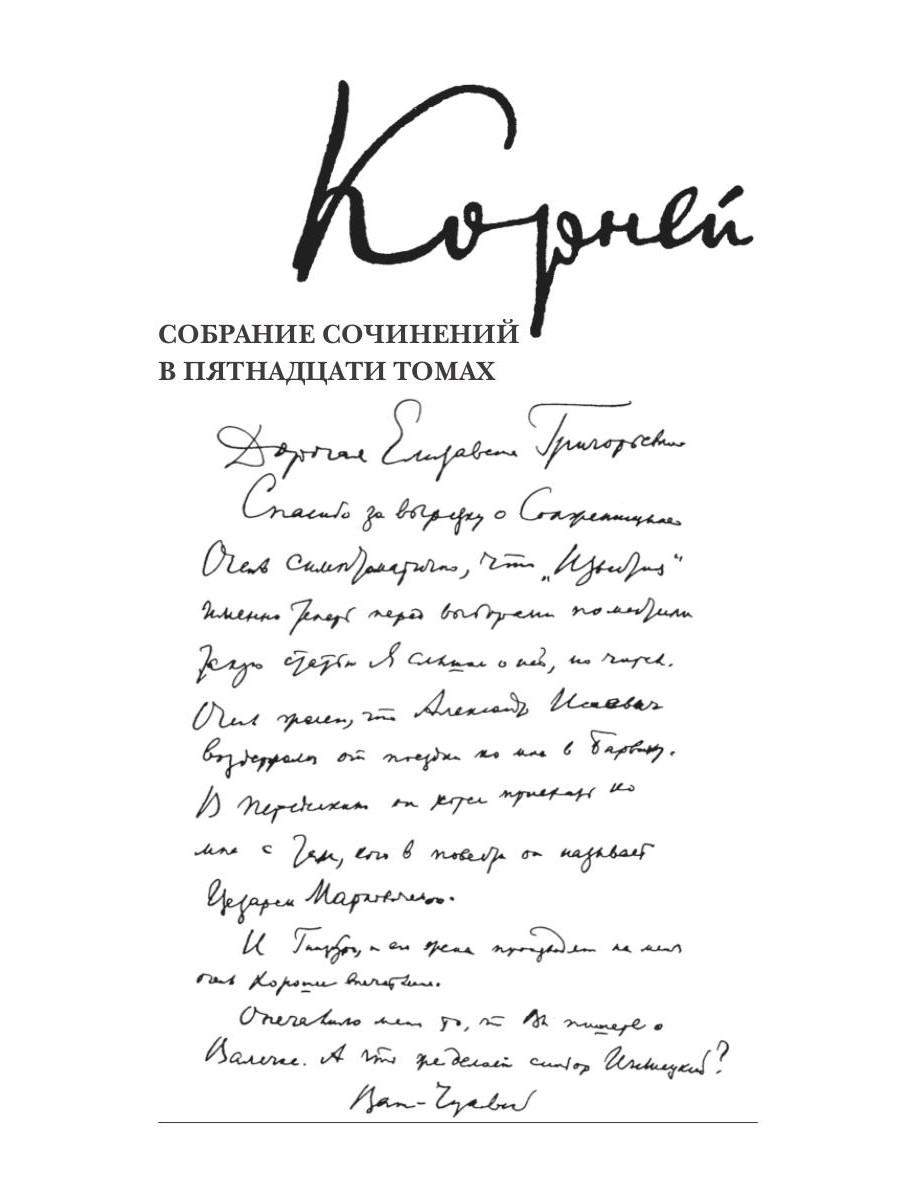 Корней
СОБРАНИЕ СОЧИНЕНИЙ
В ПЯТНАДЦАТИ ТОМАХ
Дорогая Елизавета Григорьевна
Спасибо за вырезку о Солженицыне
Очень симптоматично, что „Известия“
именно теперь перед выборами поместили
такую статью Я слышал о ней, но не читал.
Очень что Александр Исаевич
воздержался от поездки ко мне в Барвиху.
В Переделкино он хотел приехать ко
мне с тем, кого в повести он называет
Цезарем Марковичем.
И и его жена производят на меня
очень хорошее впечатление.
Опечалило меня то, что Вы пишете о
А что сделал